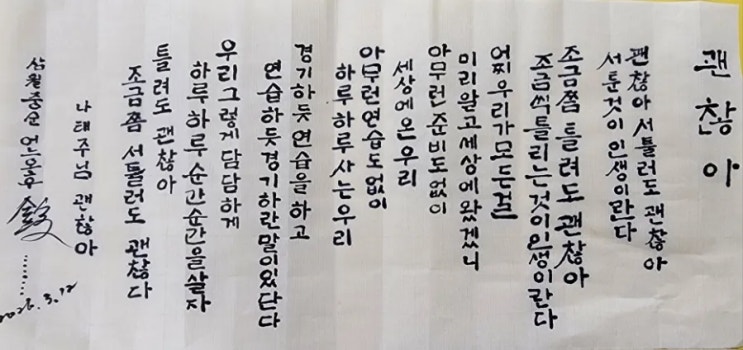 괜찮아
괜찮아 서툴러도 괜찮아
서툰것이 인생이란다
조금쯤 틀려도 괜찮아
조금씩 틀리는것이 인생이란다
어찌 우리가 모든걸
미리 알고 세상에 왔겠니
아무런 준비도 없이
세상에 온 우리
아무런 연습도 없이
하루하루 사는 우리
경기하듯 연습을 하고
연습하듯 경기하란 말이 있단다
우리 그렇게 담담하게
하루하루 순간순간을 살자
틀려도 괜찮아
조금쯤 서툴러도 괜찮다
나태주님 괜찮아
삼월중순 오후
3.12